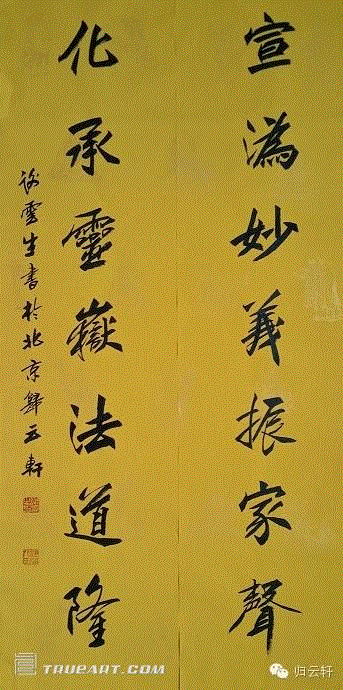 宣溈妙義振家聲
化承靈嶽法道隆
雲生書於北京歸云軒
TRUEART.COM
归云轩